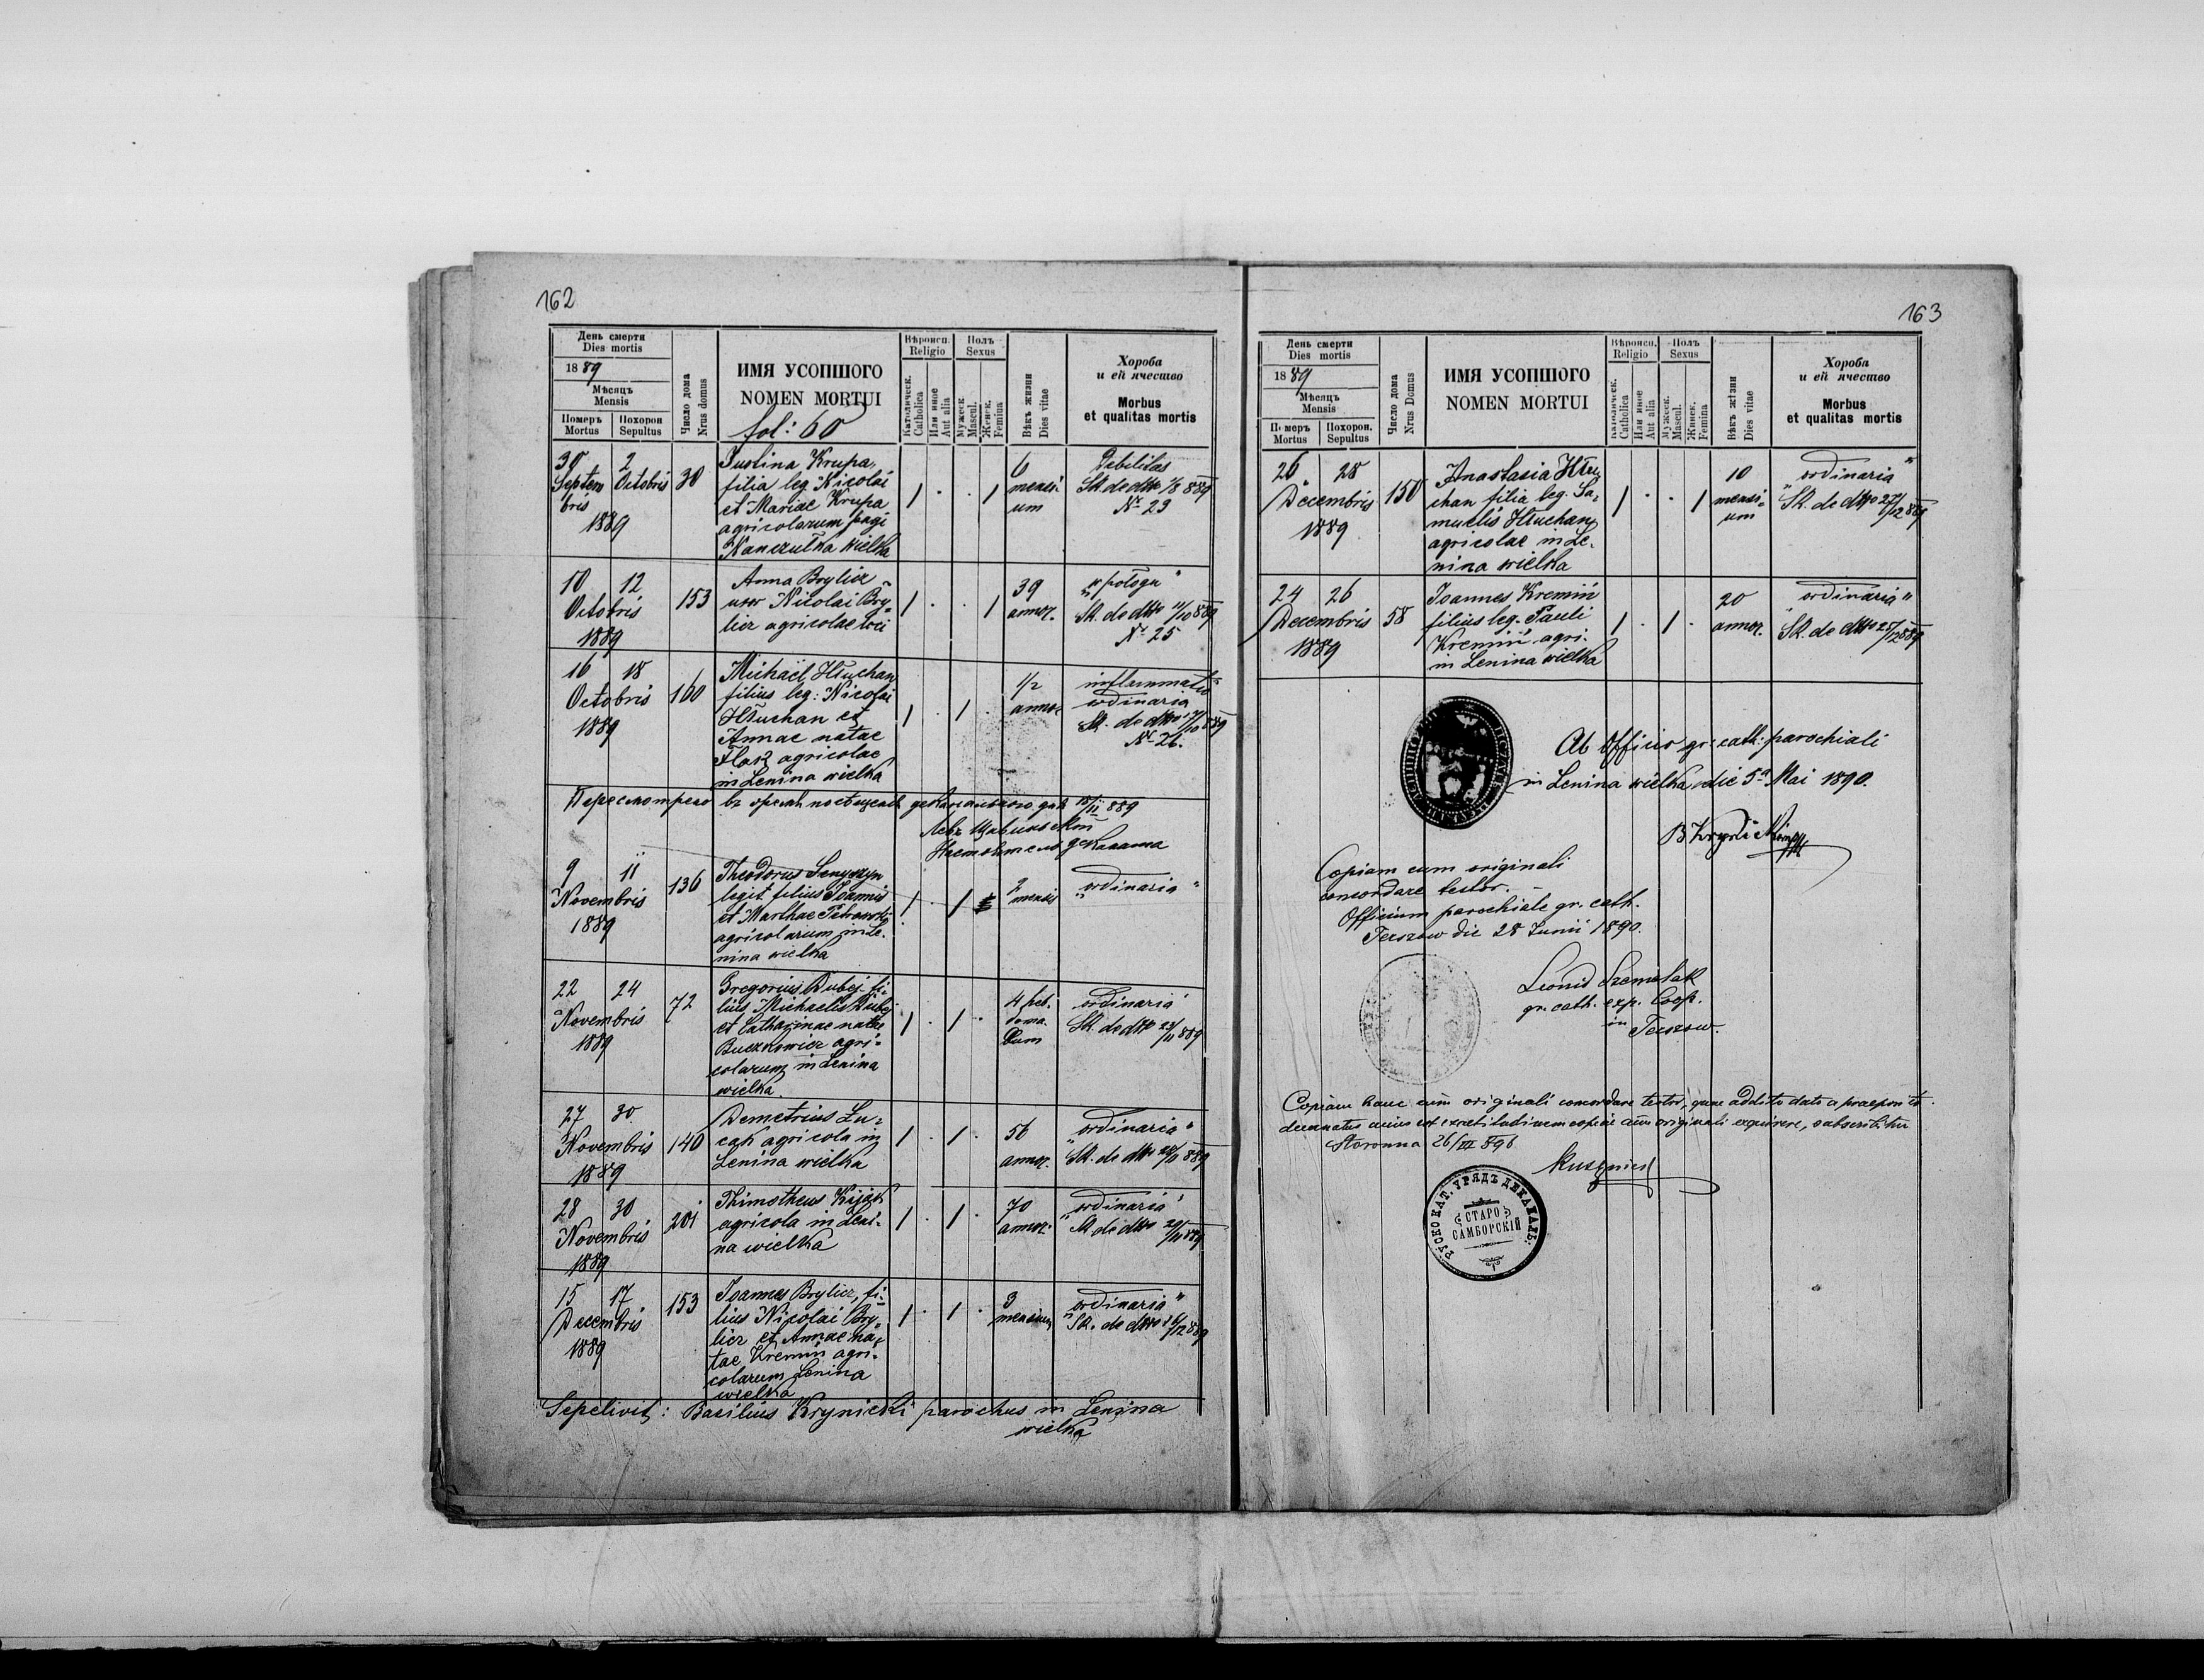 162
День смерти
Dies mortis
1889
Мѣсяцъ
Mensis
Померъ
Mortus
Похорон
Sepultus
Число дома
Nrus domus
ИМЯ УСОПШОГО
NOMEN MORTUI
fol: 60
Вѣроисп.
Religio
Католическ.
Catholica
Или иное
Aut alia
Полъ
Sexus
Мужеск.
Mascul.
Женск.
Femina
Вѣкъ жизни
Dies vitae
Хороба
и ей ячество
Morbus
et qualitas mortis
30 2
Septem Octobris
bris
1889
30
Justina Krupa,
filia leg. Nicolai
et Mariae Krupa
agricolarum pagi
wielka
1 . . 1
6
mensi-
um
Debilitas
Nr 23
10 12
Octobris
1889
153
Anna Brylicz
uxor Nicolai Bry-
licz agricolae
1 . . 1
39
annor.
"połogu"
Nr 25
16 18
Octobris
1889
160
Michael Hłuchan
filius leg: Nicolai
Hłuchan et
Annae natae
agricolae
in Lenina wielka
1 . 1 .
1/2
annor
inflammatio
ordinaria
Nr 26.
889
9 11
Novembris
1889
136
Theodorus Senyszyn
legit. filius Joannis
et Marthae
agricolarum in Le-
nina wielka
1 . 1
2
mensis
"ordinaria"
22 24
Novembris
1889
72
Gregorius Dubej fi-
lius Michaelis Dubej
et Catharinae natae
Buczkowicz agri-
colarum in Lenina
wielka.
1 . 1 .
4 heb-
doma-
dum
ordinaria
27 30
Novembris
1889
140
Demetrius Lu-
cah agricola in
Lenina wielka
1 . 1 .
56
annor.
"ordinaria"
28 30
Novembris
1889
201
Thimotheus Kijak
agricola in Leni-
na wielka
1 . 1 .
70
annor.
"ordinaria"
15 17
Decembris
1889
153
Joannes Brylicz, fi-
lius Nicolai Bry-
licz et Annae na-
tae Kremiń agri-
colarum Lenina
wielka
1 . 1 .
3
mensium
"ordinaria"
Sepelivit: Basilius Krynicki parochus in Lenina
wielka
163
День смерти
Dies mortis
1889
Мѣсяцъ
Mensis
Померъ
Mortus
Похорон.
Sepultus
Число дома
Nrus Domus
ИМЯ УСОПШОГО
NOMEN MORTUI
Вѣроисп.
Religio
Католическ.
Catholica
Или иное
Aut alia
Полъ
Sexus
Мужеск.
Mascul.
Женск.
Femina
Вѣкъ жізни
Dies vitae
Хороба
и ей ячество
Morbus
et qualitas mortis
26 28
Decembris
1889
150
Anastasia Hłu-
chan filia leg. Sa-
muelis Hłuchan
agricolae in Le-
nina wielka
1 . . 1
10
mensi-
um
"ordinaria"
24 26
Decembris
1889
58
Joannes Kremiń
filius leg. Pauli
Kremiń agri.
in Lenina wielka
1 . 1 .
20
annor.
"ordinaria"
Ab Officio gr: cath: parochiali
in Lenina wielka die 5a Mai 1890.
Copiam cum originali
concordare testor.
Officium parochiale gr. cath.
Terszow die 28 Junii 1890.
Leonid Szemelak
gr. cath. exp. Coop.
in Terszow
Copiam hanc cum originali concordare testor,
26/III 896
РУСКО КАТ. УРЯДЪ ДЕКАНАЛЬ.
СТАРО
САМБОРСКІЙ